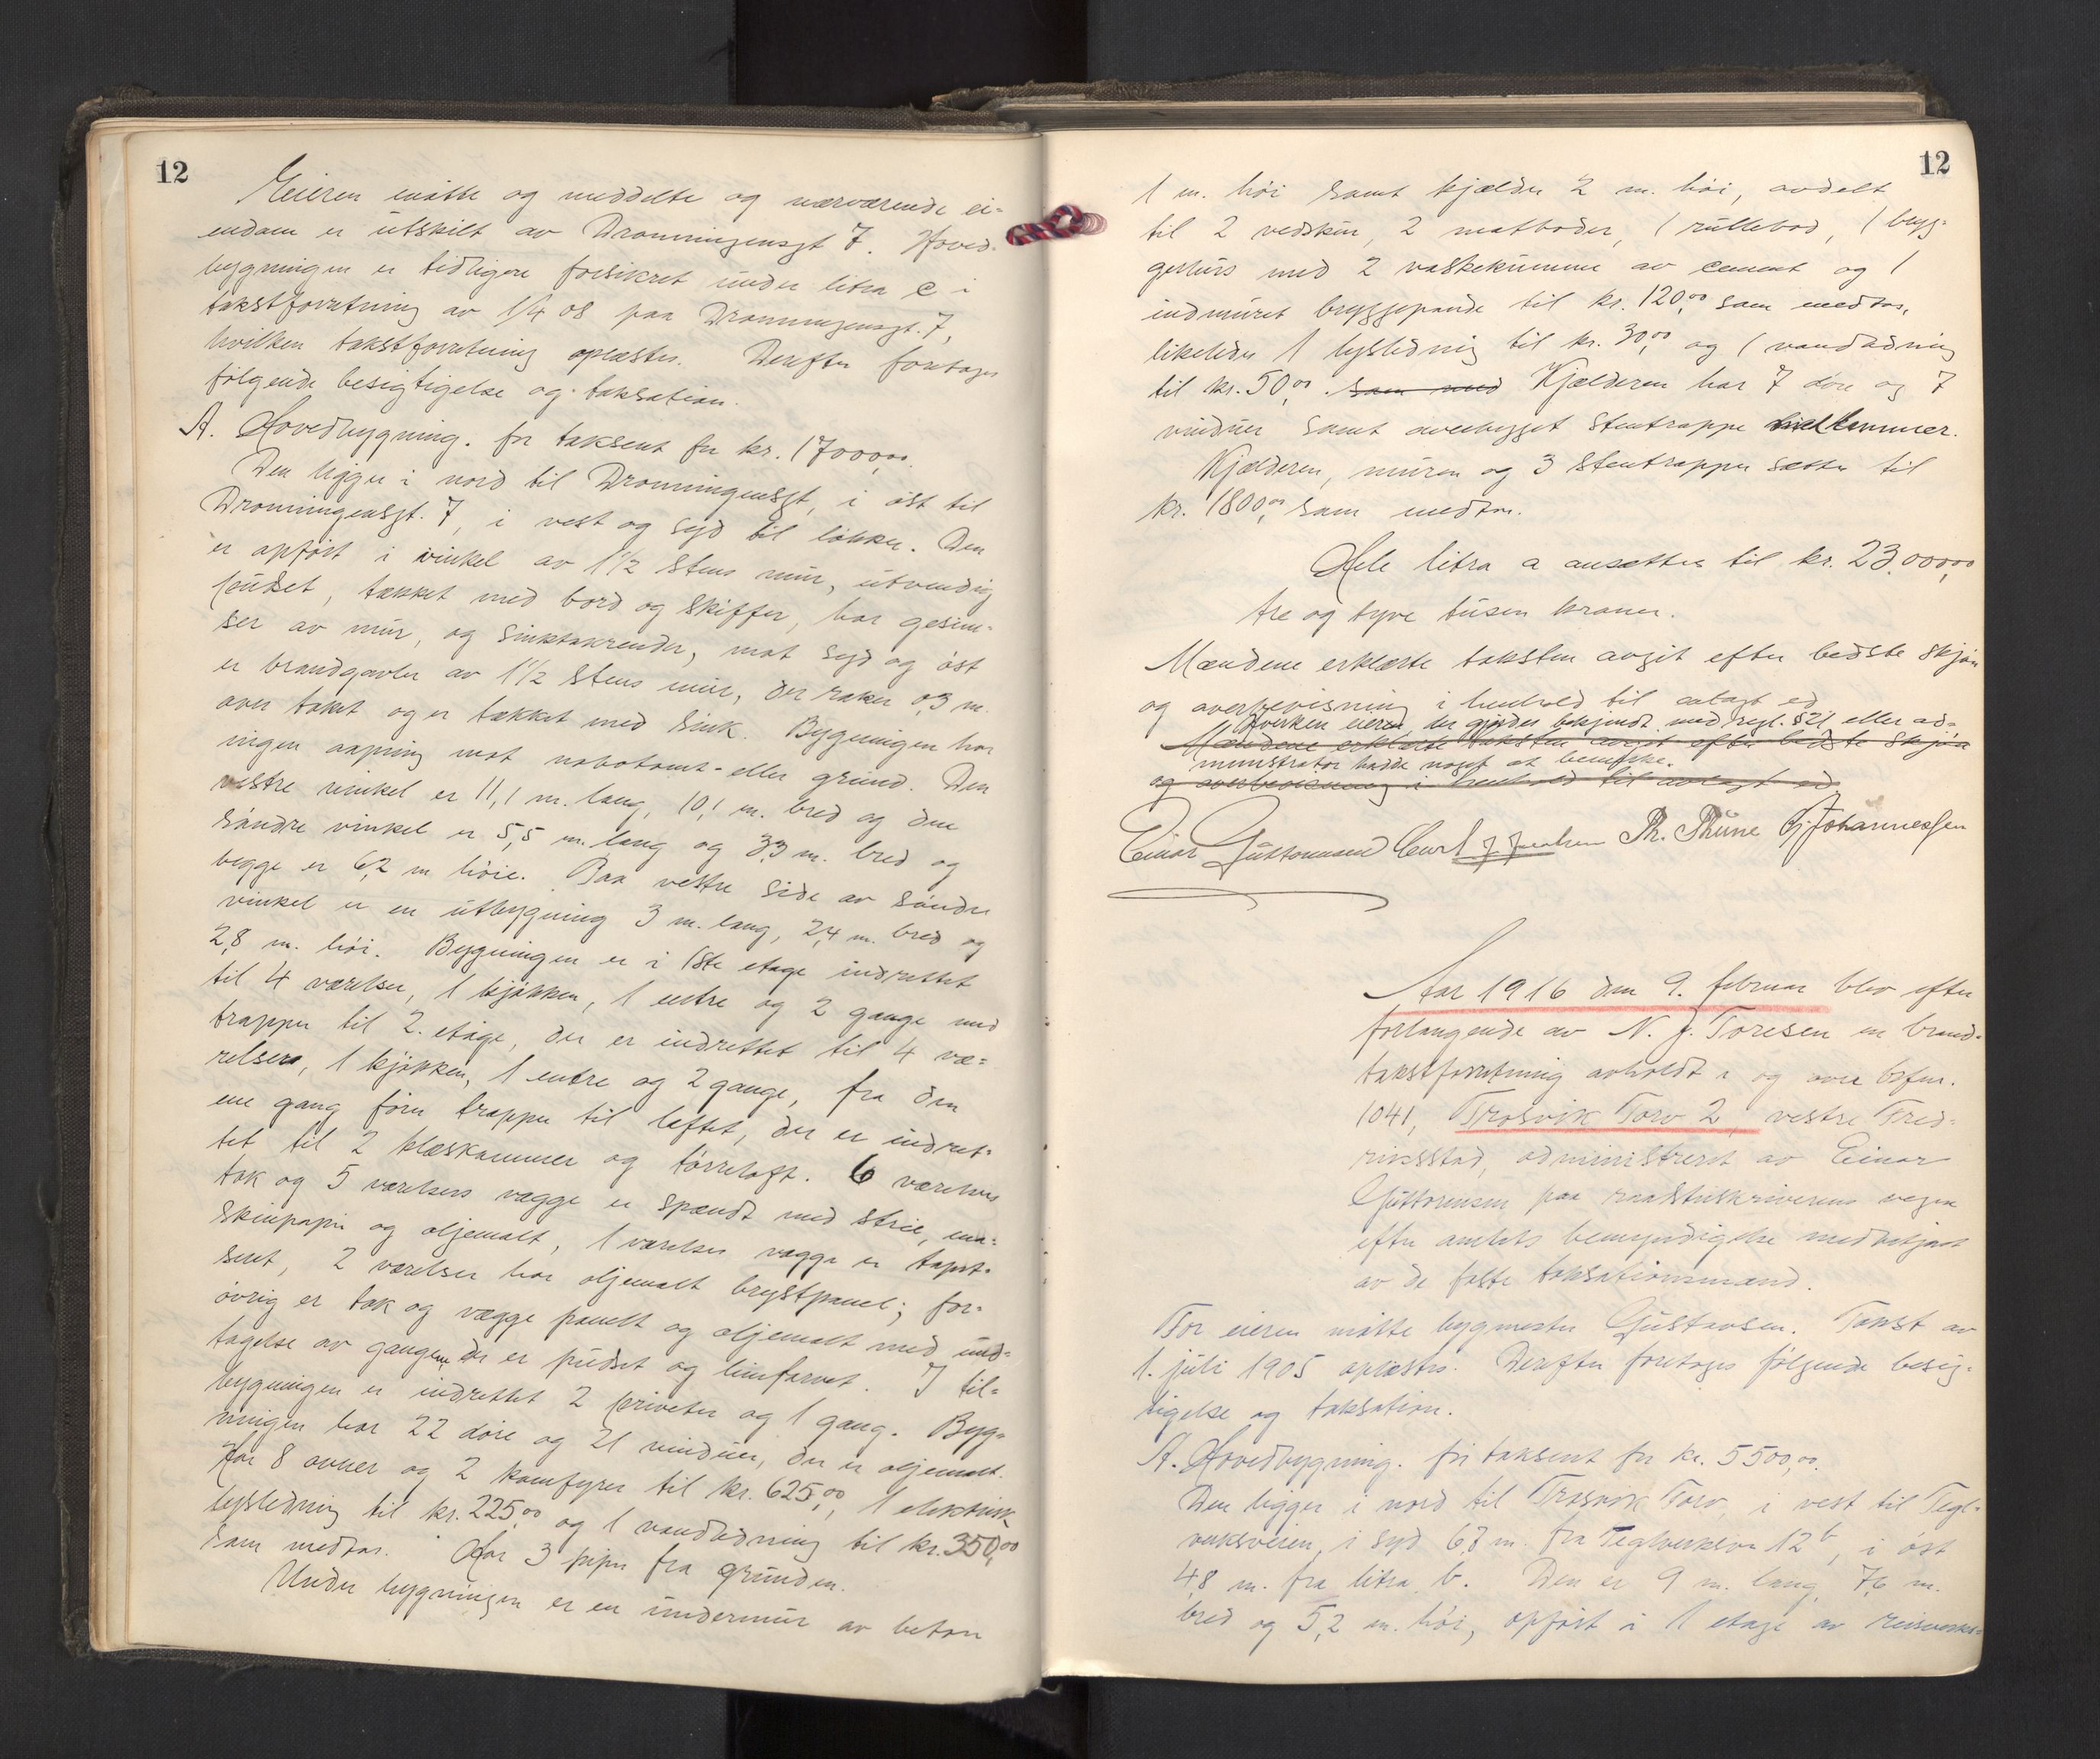 12
Eieren møtte og meddelte og nærværende ei-
endom er utskilt av Dronningensgt 7. Hoved-
bygningen er tidligere forsikret under litra C i
takstforretning av 1/4 08 paa Dronningensgt. 7,
hvilken takstforretning oplæstes. Derefter foretages
følgende besigtigelse og taksation.
A. Hovedbygning. før taksert for kr. 17000,00.
Den ligger i nord til Dronningensgt, i øst til
Dronningensgt. 7, i vest og syd til løkker. Den
er opført i vinkel av 1 1/2 stens mur, utvendig
pudset, tækket med bord og skiffer, har gesim-
ser av mur, og sinktakrender, mot syd og øst
er brandgavler av 1 1/2 stens mur, der raker 0,3 m.
over taket og er tækket med sink. Bygningen har
ingen aapning mot nabotomt- eller grund. Den
vestre vinkel er 11,1 m. lang, 10,1 m. bred og den
søndre vinkel er 5,5 m. lang og 3,3 m. bred og
begge er 6,2 m høie. Paa vestre side av søndre
vinkel er en utbygning 3 m. lang, 2,4 m. bred og
2,8 m. høi. Bygningen er i 1ste etage indrettet
til 4 værelser, 1 kjøkken, 1 entre og 2 gange med
trapper til 2. etage, der er indrettet til 4 væ-
relser, 1 kjøkken, 1 entre og 2 gange, fra den
ene gang fører trapper til loftet, der er indret-
tet til 2 klæskammer og tørreloft. 6 værelsers
tak og 5 værelsers vægge er spændt med strie, ma-
skinpapir og oljemalt, 1 værelses vægge er tapet-
seret, 2 værelser har oljemalt brystpanel; for-
øvrig er tak og vægge panelt og oljemalt med und-
tagelse av gangene der er pudset og limfarvet. I til-
bygningen er indrettet 2 priveter og 1 gang. Byg-
ningen har 22 døre og 21 vinduer, der er oljemalt.
Har 8 ovner og 2 komfyrer til kr. 625,00, 1 elektrisk
lysledning til kr. 225,00 og 1 vandledning til kr. 350,00
som medtas. Har 3 piper fra grunden.
Under bygningen er en undermur av beton
12
1 m. høi samt kjælder 2 m. høi, avdelt
til 2 vedskur, 2 matboder, 1 rullebod, 1 bryg-
gerhus med 2 vaskekummer av cement og 1
indmuret bryggepande til kr. 120,00 som medtas,
likeledes 1 lysledning til kr. 30,00 og 1 vandledning
til kr. 50,00. som med Kjælderen har 7 døre og 7
vinduer samt overbygget stentrappe med lemmer.
Kjælderen, muren og 3 stentrapper sættes til
kr. 1800,00 som medtas.
Hele litra a ansættes til kr. 23.000,00
tre og tyve tusen kroner.
Mændene erklærte taksten avgit efter bedste skjøn
og overbevisning i henhold til avlagt ed
Hverken eieren der gjordes bekjendt med regl. § 21 eller ad-
Mændene erklærte taksten avgit efter bedste skjøn
ministrator hadde noget at bemerke.
og overbevisning i henhold til avlagt ed
Einar Guttormsen Carl J. Th. Thune Johannessen
Aar 1916 den 9. februar blev efter
forlangende av N. J. Toresen en brand-
takstforretning avholdt i og over bsfnr.
1041, Trosvik Torv 2, vestre Fred-
riksstad, administreret av Einar
Guttormsen paa magistratskriverens vegne
efter amtets bemyndigelse med betjent
av de faste taksationsmænd.
For eieren møtte bygmester Gustavsen. Takst av
1. juli 1905 oplæstes. Derefter foretages følgende besig-
tigelse og taksation.
A. Hovedbygning. før taksert for kr. 5500,00.
Den ligger i nord til Trosvik Torv, i vest til Tegl-
verksveien, i syd 6,8 m. fra Teglverksvn 12b, i øst
4,8 m. fra litra b. Den er 9 m. lang, 7,6 m.
bred og 5,2 m. høi, opført i 1 etage av reisverks-